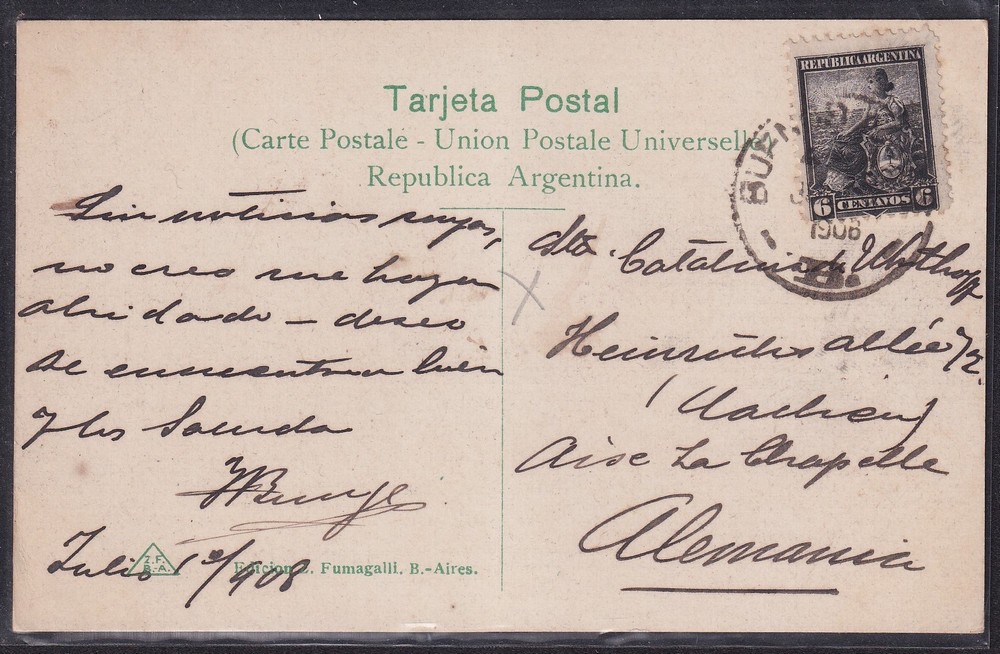 Tarjeta Postal
(Carte Postale - Union Postale Universelle)
Republica Argentina.
REPUBLICA ARGENTINA
6 CENTAVOS 6
BUENOS
1908
Sin noticias suyas,
no creo me haya
olvidado – deseo
se encuentra bien
y los Saluda
HBunge
Julio 1º/908
Z.F.
B.-A.
Edicion Z. Fumagalli. B.-Aires.
Sta. Catalina de
Heinrichs allée 72
(Aachen)
Aise La Chapelle
Alemania